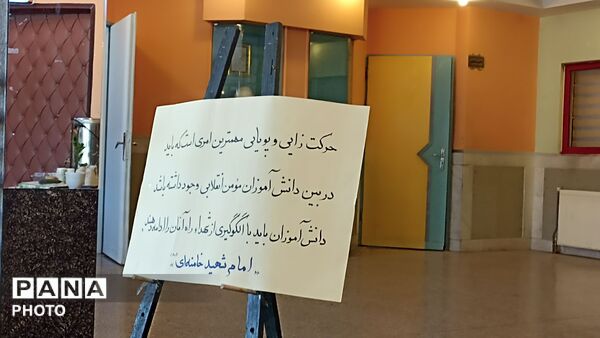 حرکت زایی و پویایی مهمترین امری است که باید
در بین دانش آموزان مؤمن انقلابی وجود داشته باشد.
دانش آموزان باید با الگوگیری از شهدا، راه آنان را ادامه دهند.
"امام شهید خامنه‌ای"
PANA
PHOTO